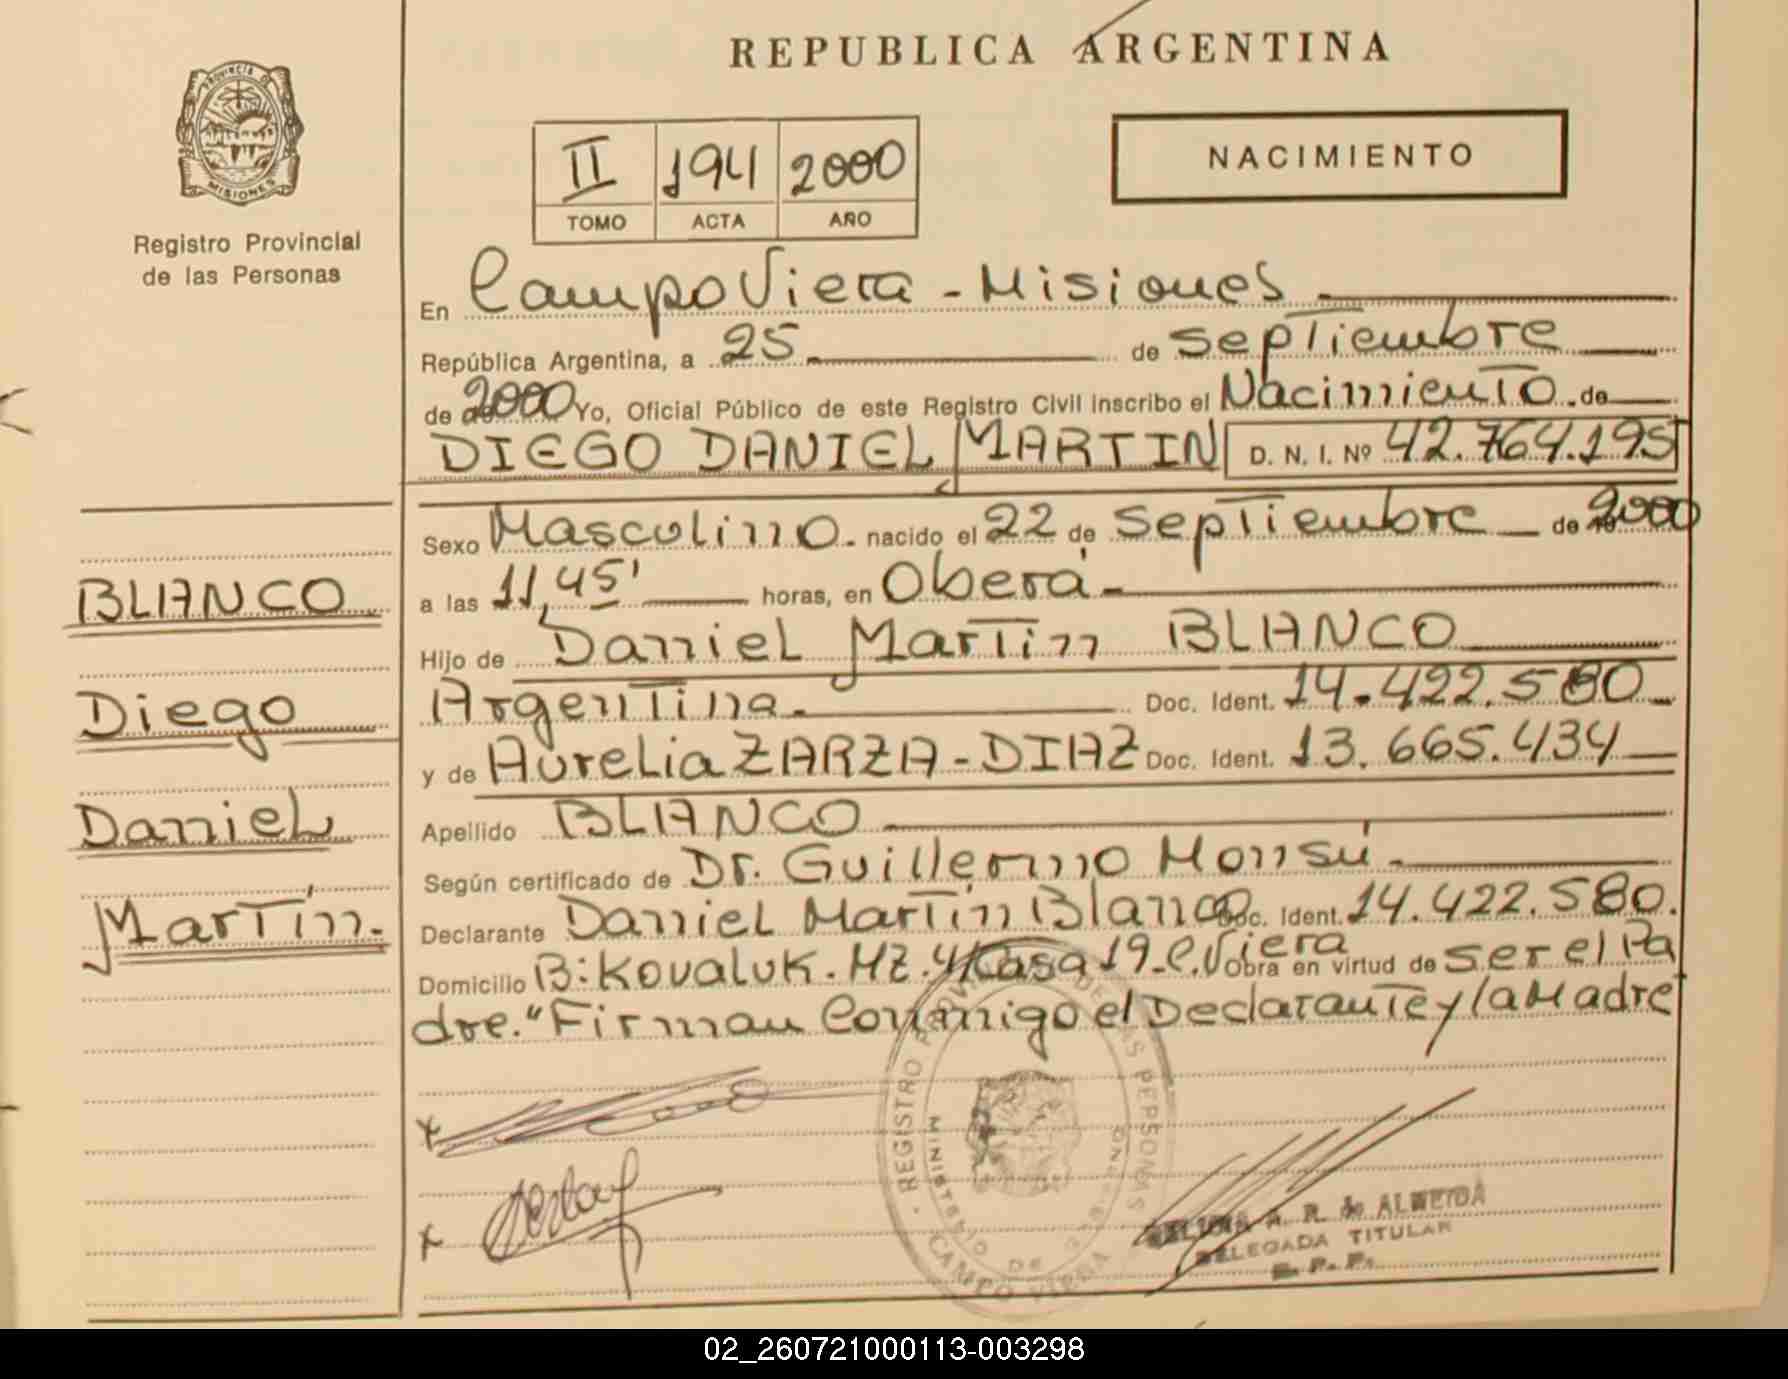 REPUBLICA ARGENTINA
PROVINCIA DE
MISIONES
Registro Provincial
de las Personas
II 194 2000
TOMO ACTA AÑO
NACIMIENTO
En Campo Viera - Misiones
República Argentina, a 25 de Septiembre
de 2000 Yo, Oficial Público de este Registro Civil inscribo el Nacimiento de
DIEGO DANIEL MARTIN D. N. I. Nº 42.764.195
Sexo Masculino. nacido el 22 de Septiembre de 2000
a las 11,45' horas, en Oberá
Hijo de Daniel Martin BLANCO
Argentina. Doc. Ident. 14.422.580
y de Aurelia ZARZA-DIAZ Doc. Ident. 13.665.434
Apellido BLANCO
Según certificado de Dr. Guillermo Monsú
Declarante Daniel Martín Blanco Doc. Ident. 14.422.580.
Domicilio B: Kovaluk. Mz. 4/Casa 19-C. Viera Obra en virtud de ser el Pa
dre. "Firman Conmigo el Declarante y la Madre
BLANCO
Diego
Daniel
Martín.
x
x
REGISTRO PROVINCIAL DE LAS PERSONAS
MINISTERIO DE GOBIERNO
CAMPO VIERA
A. R. de ALMEIDA
DELEGADA TITULAR
R. P. P.
02_260721000113-003298